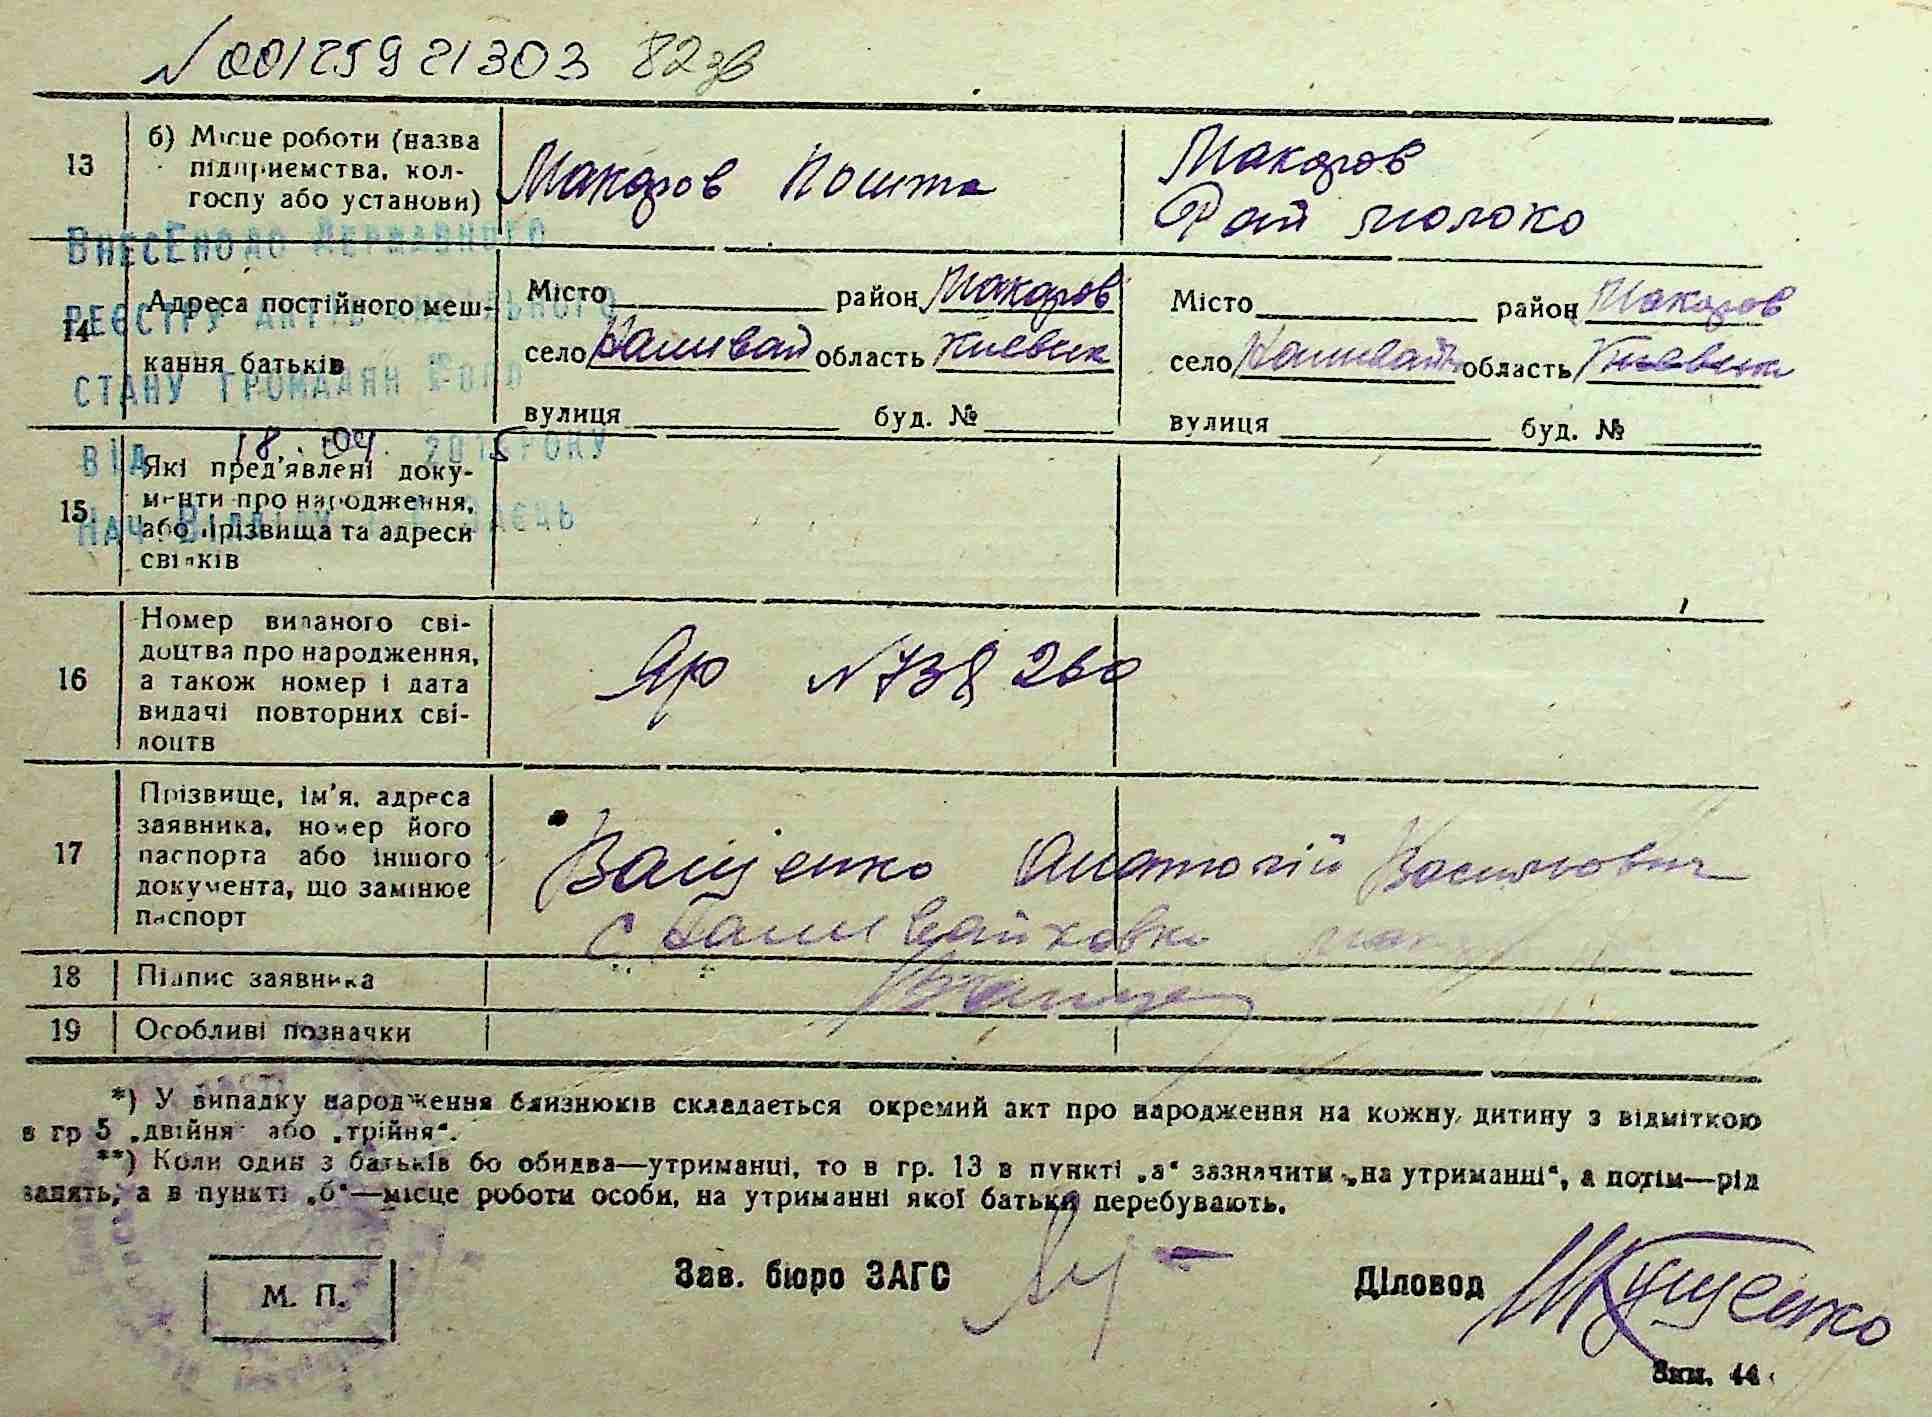 № 00125921303 82зв
13 б) Місце роботи (назва підприємства, кол-
госпу або установи)
Макаров Пошта
Макаров
Рай молоко
Внесено до Державного
реєстру актів цивільного
стану громадян
від 18.04.2015 року
Нач. відділу
14 Адреса постійного меш-
кання батьків
Місто район Макаров
село Наливай область Киевск
вулиця буд. №
Місто район Макаров
село Наливай область Киевск
вулиця буд. №
15 Які пред'явлені доку-
менти про народження,
або прізвища та адреси
свідків
16 Номер виданого сві-
доцтва про народження,
а також номер і дата
видачі повторних сві-
доцтв
ЯР № 738260
17 Прізвище, ім'я, адреса
заявника, номер його
паспорта або іншого
документа, що замінює
паспорт
Ващенко Анатолій Васильович
с Наливайковка
18 Підпис заявника
19 Особливі позначки
*) У випадку народження близнюків складається окремий акт про народження на кожну дитину з відміткою
в гр 5 „двійня“ або „трійня“.
**) Коли один з батьків бо обидва—утриманці, то в гр. 13 в пункті „а“ зазначити „на утриманні“, а потім—рід
занять, а в пункті „б“—місце роботи особи, на утриманні якої батьки перебувають.
М. П.
Зав. бюро ЗАГС
Діловод
Зам. 44